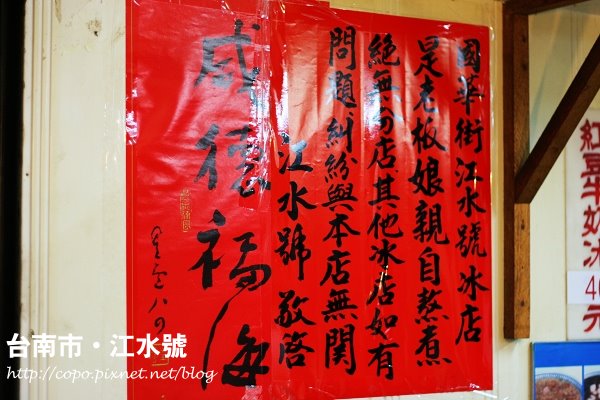 國華街江水號冰店
是老板娘親自熬煮
絕無分店其他冰店如有
問題糾紛與本店無関
江水號 敬啓
感德福海
紅豆牛奶冰
40元
台南市・江水號
http://copo.pixnet.net/blog